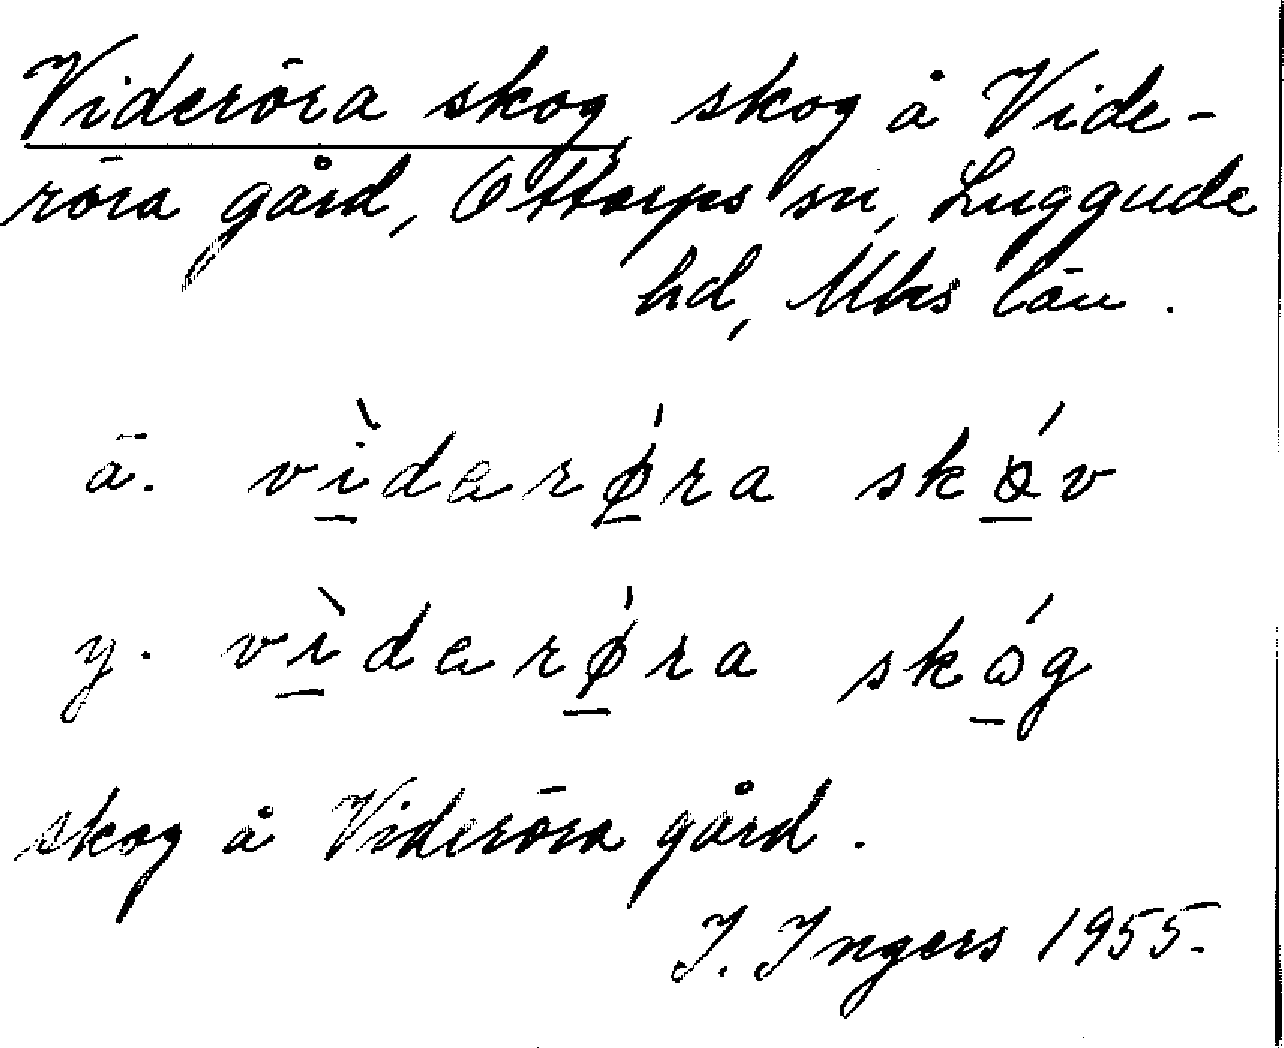 Videröra skog, skog å Vide-
röra gård, Ottarps sn, Luggude
hd, Mhs län.
ä. vìdarǿra skóv
y. vìdarǿra skóg
skog å Videröra gård.
I. Ingers 1955.